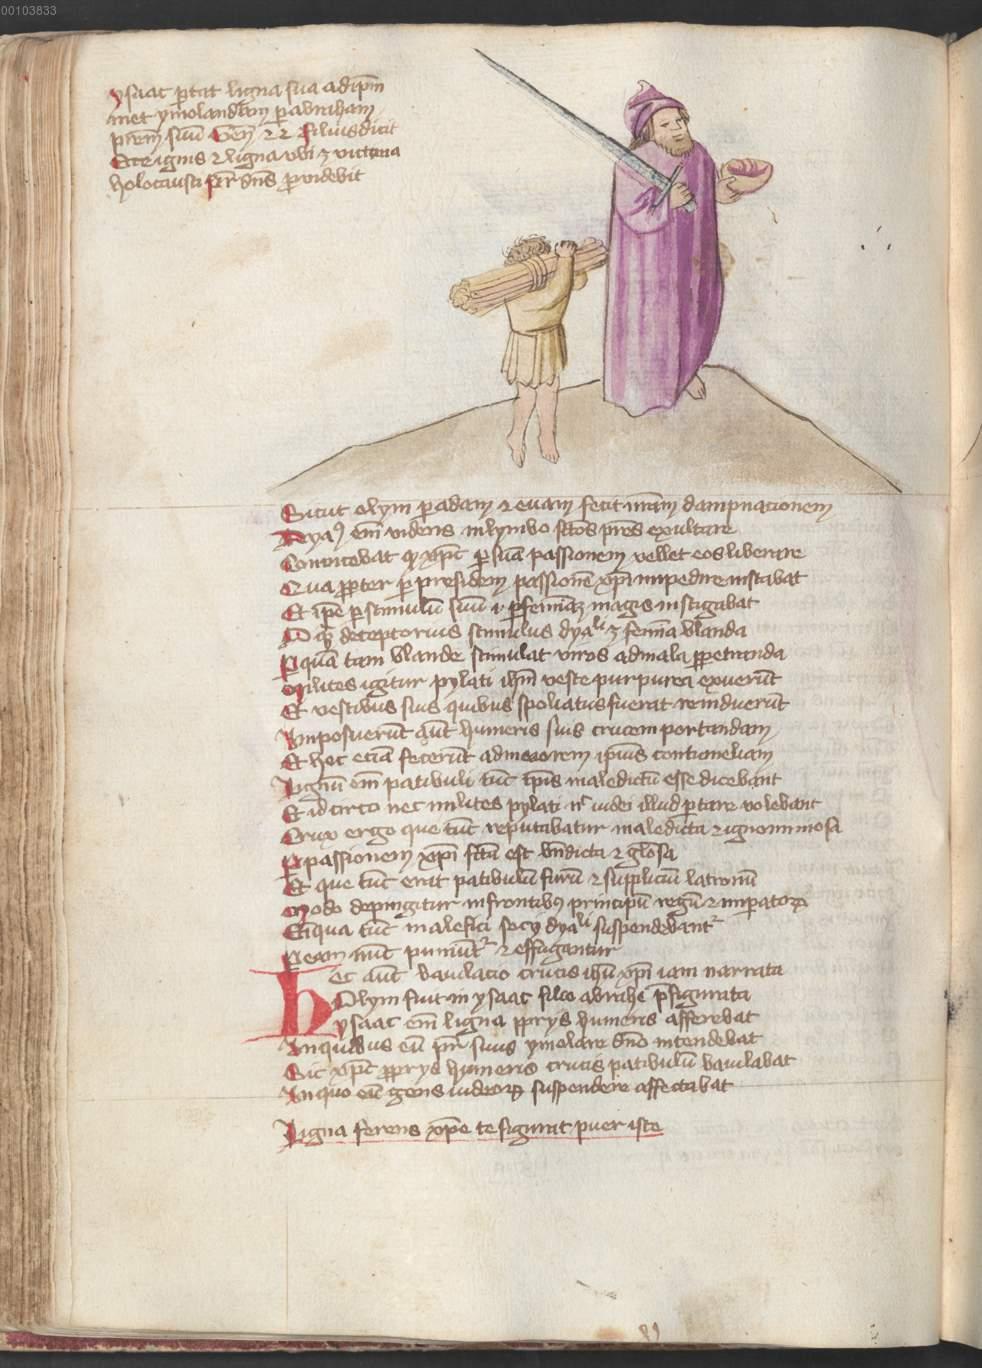 00103833
ysaac portat ligna sua ad ipm
met ymolandum p abraham
prem suu Gen 22 filius dicit
Ecce ignis et ligna vbi est victima
holocausti pr dns prouidebit
Sicut olym p adam et euam fecit nram dampnacionem
Dyas em videns in lymbo scos pres exultare
Conuicebat qz xps p sua passionem vellet eos liberare
Qua ppter p presidem passione xpi impedire instabat
Et ipe p stimulu suu i pfeminaz magis instigabat
O qz deceptorius stimulus dyali est femia blanda
Pquam tam blande stimulat viros ad mala ppetranda
Milites igitur pylati ihm veste purpurea exuerut
Et vestibus suis quibus spoliatus fuerat reinduerut
Imposuerut aut humeris suis crucem portandam
Et hoc ecia fecerut ad maiorem ipius contumeliam
Lignu em patibuli tuc tpis maledictu esse dicebant
Et idcirco nec milites pylati nec iudei illud portare volebant
Crux ergo que tuc reputabatur maledicta et ignominiosa
P passionem xpi fca est bndicta et glosa
Et que tuc erat patibulu furu et suppliciu latronu
Modo depingitur in frontibus principu regu et imperatorz
Et in qua tuc malefici socij dyali suspendebant
P eam nuc puniut et effugantur
Hec aut baiulacio crucis ihu xpi iam narrata
Olym fuit in ysaac filio abrahe pfigurata
ysaac em ligna pprys humeris afferebat
In quibus eu pr suus ymolare dno intendebat
Sic xps pprys humeris crucis patibulu baiulabat
In quo eu gens iudeorz suspendere affectabat
Ligna ferens xpe te figurat puer iste